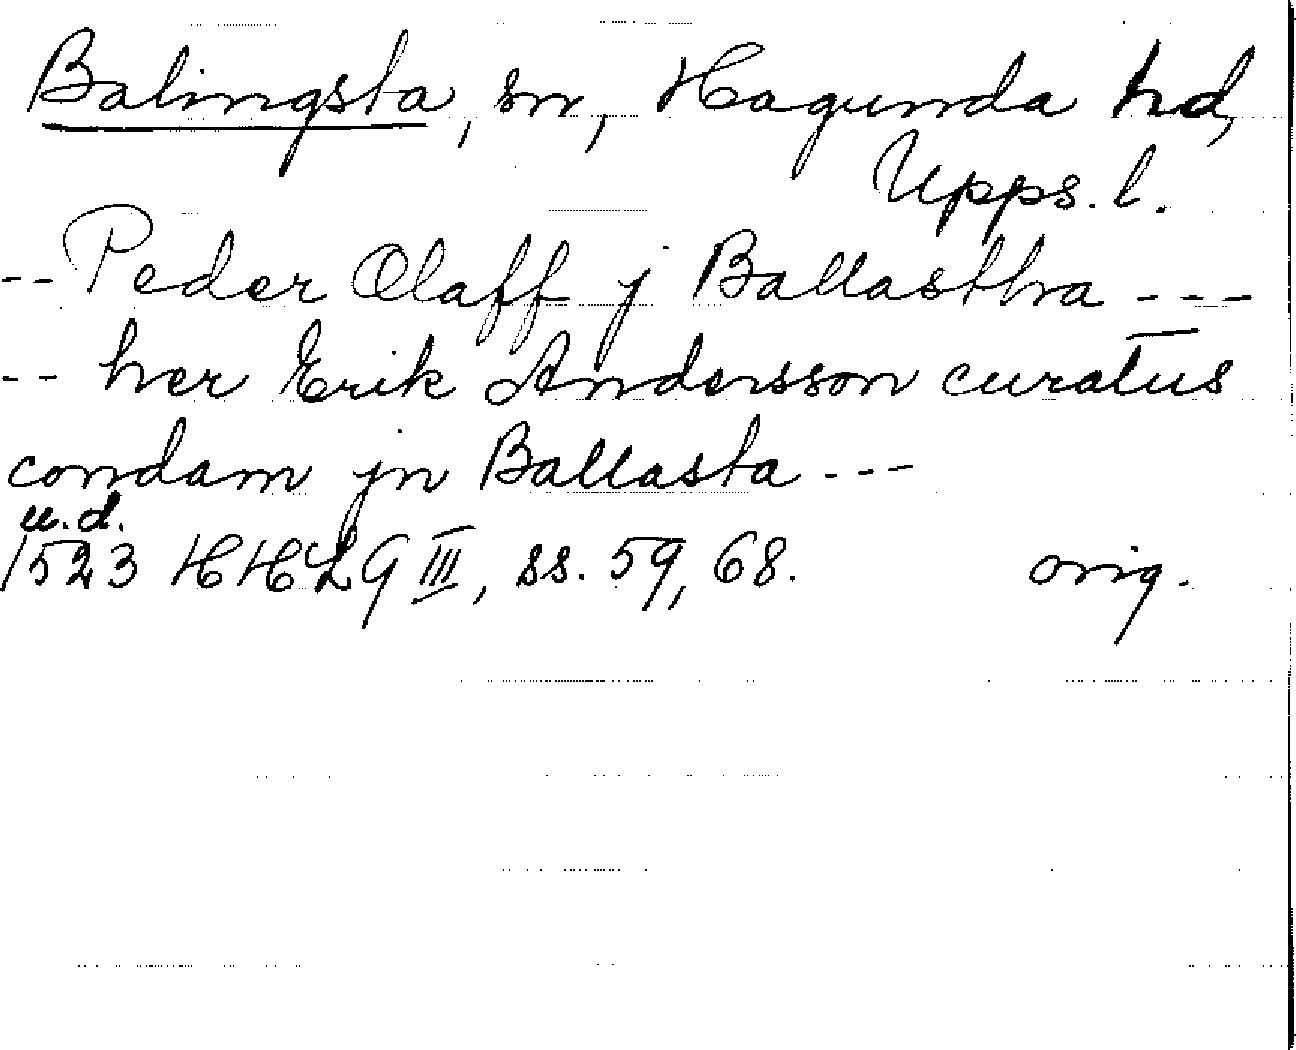 Balingsta, sn, Hagunda hd,
Upps. l.
-- Peder Olaff j Ballastha ---
-- her Erik Andersson curatus
condam jn Ballasta ---
u.d.
1523 HHLG III, ss. 59, 68. orig.